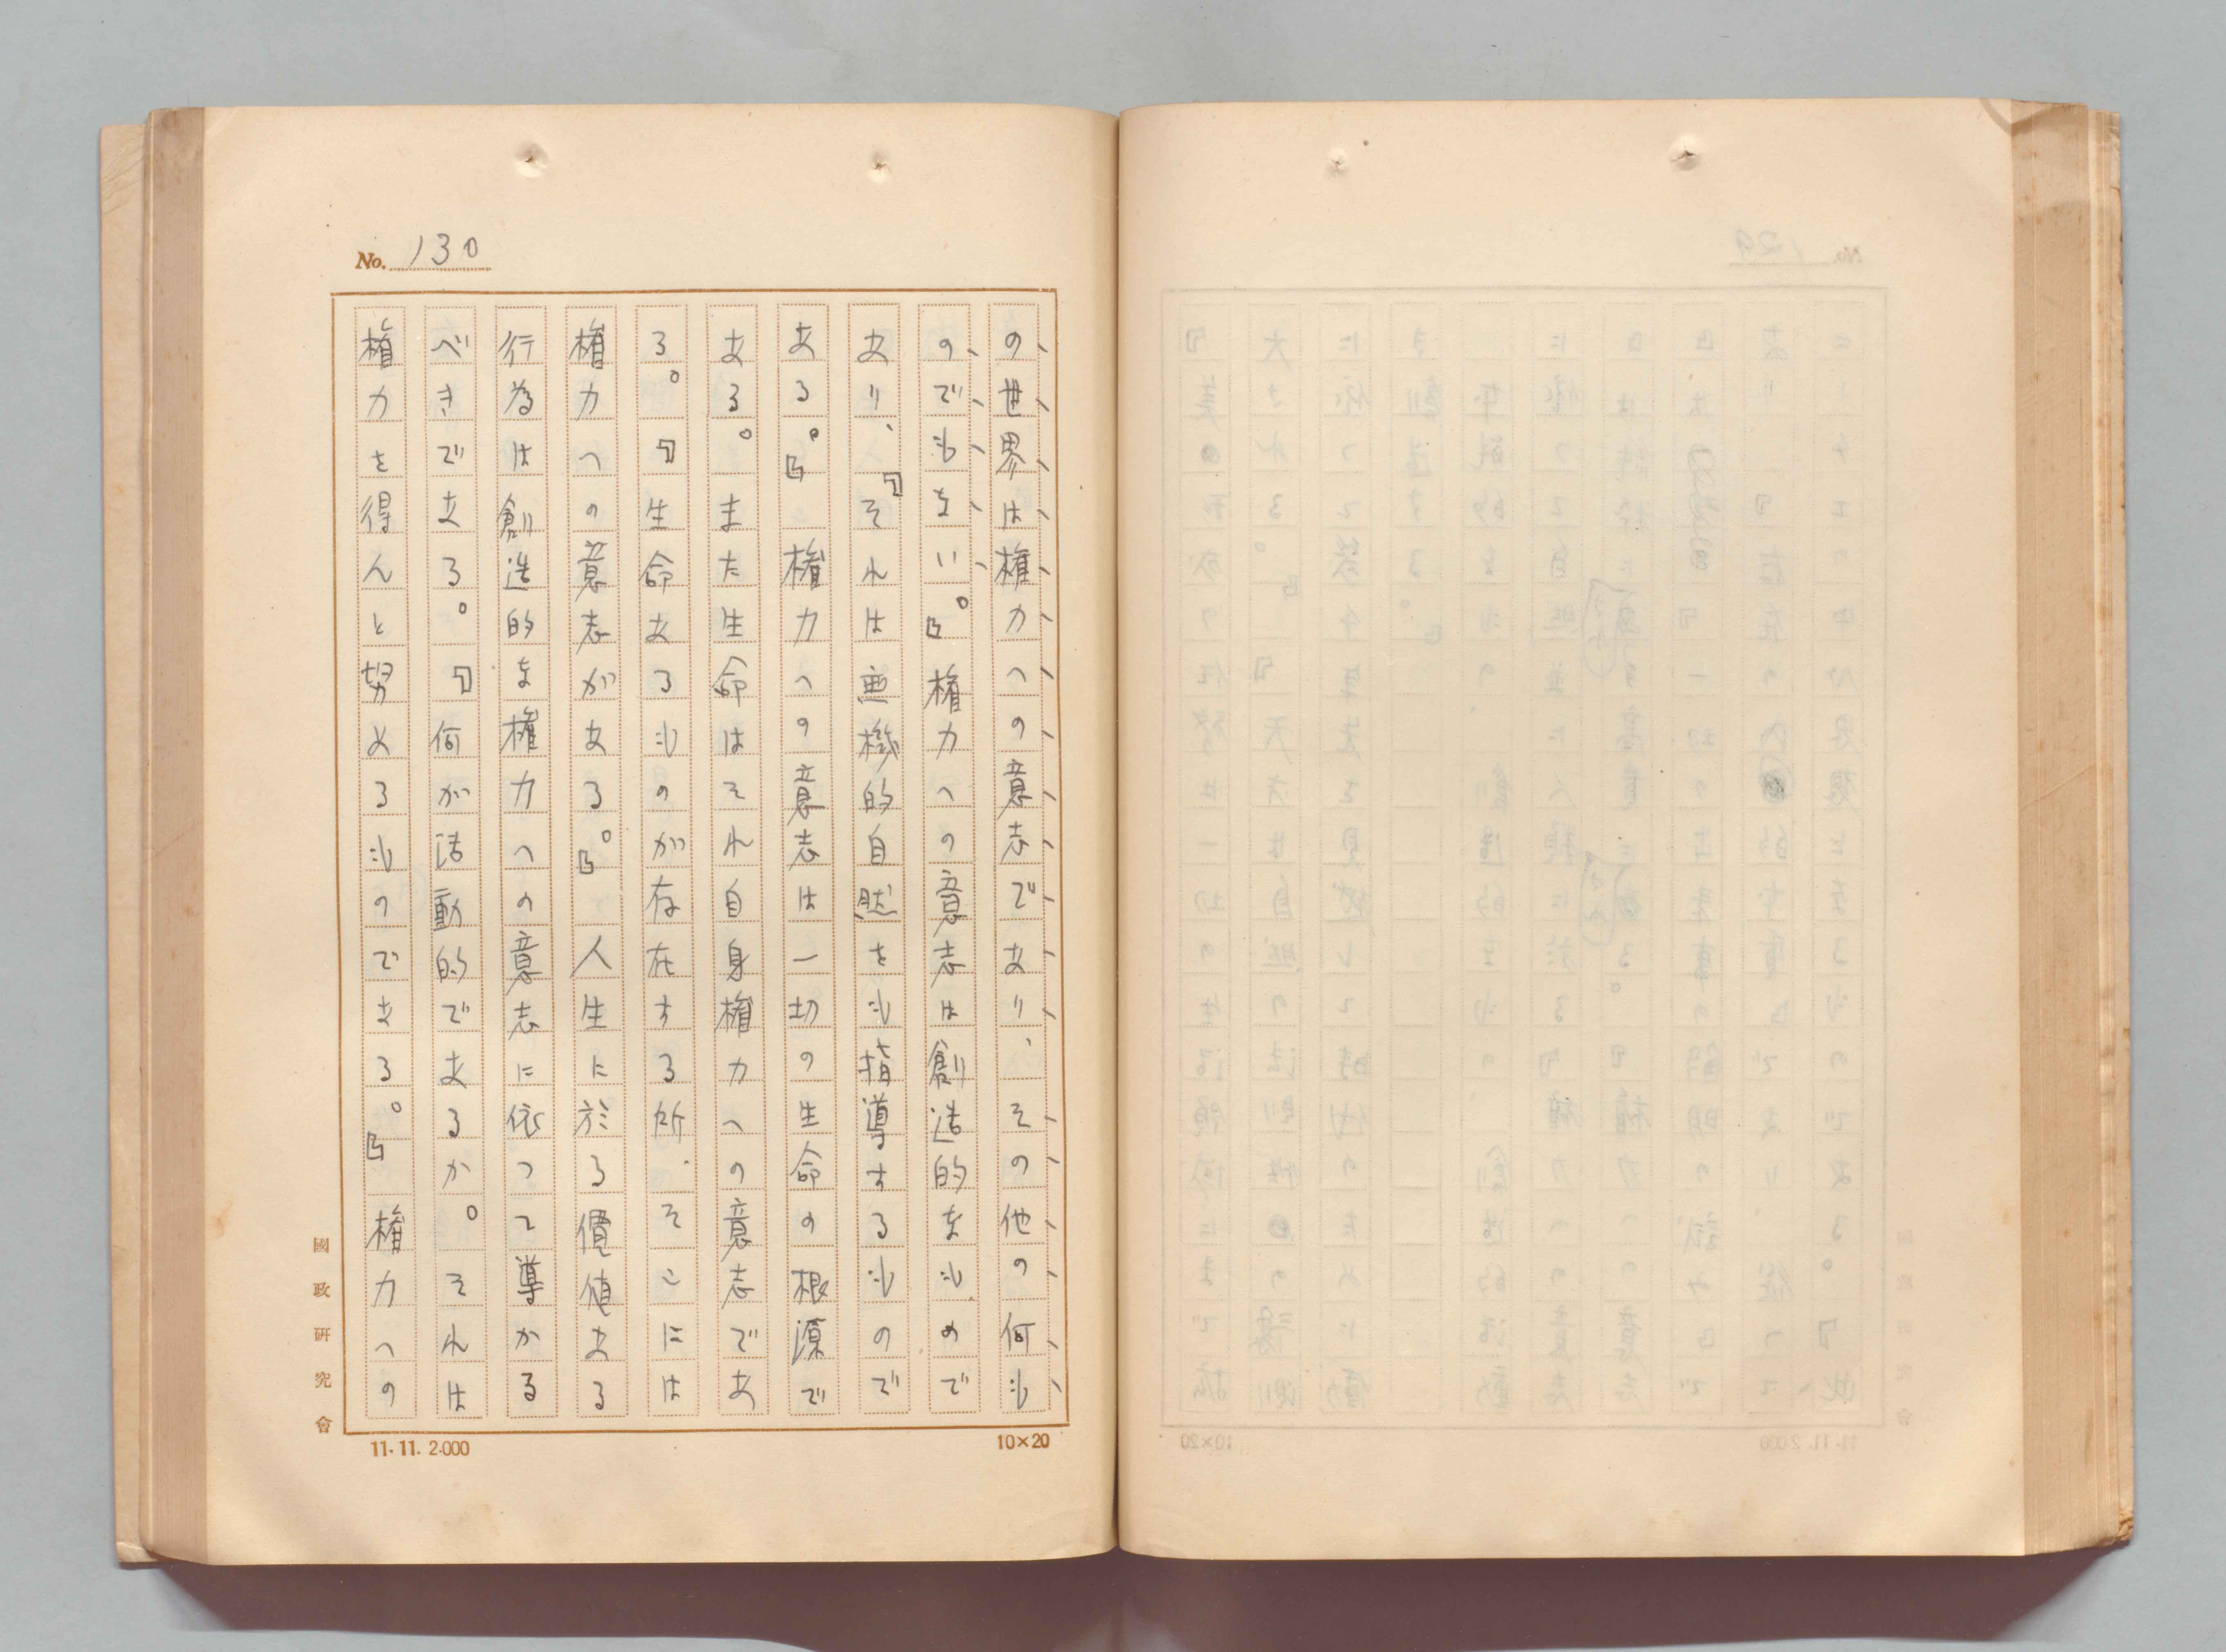 No. 130
の世界は権力への意志であり、その他の何も
のでもない。』権力への意志は創造的なもので
あり、『それは無機的自然をも指導するもので
ある。』権力への意志は一切の生命の根源で
ある。また生命はそれ自身権力への意志であ
る。『生命あるものが存在する所、そこには
権力への意志がある。』人生に於る價値ある
行為は創造的な権力への意志に依つて導かる
べきである。『何が活動的であるか。それは
権力を得んと努めるものである。』権力への
國政研究會
11.11.2.000
10×20